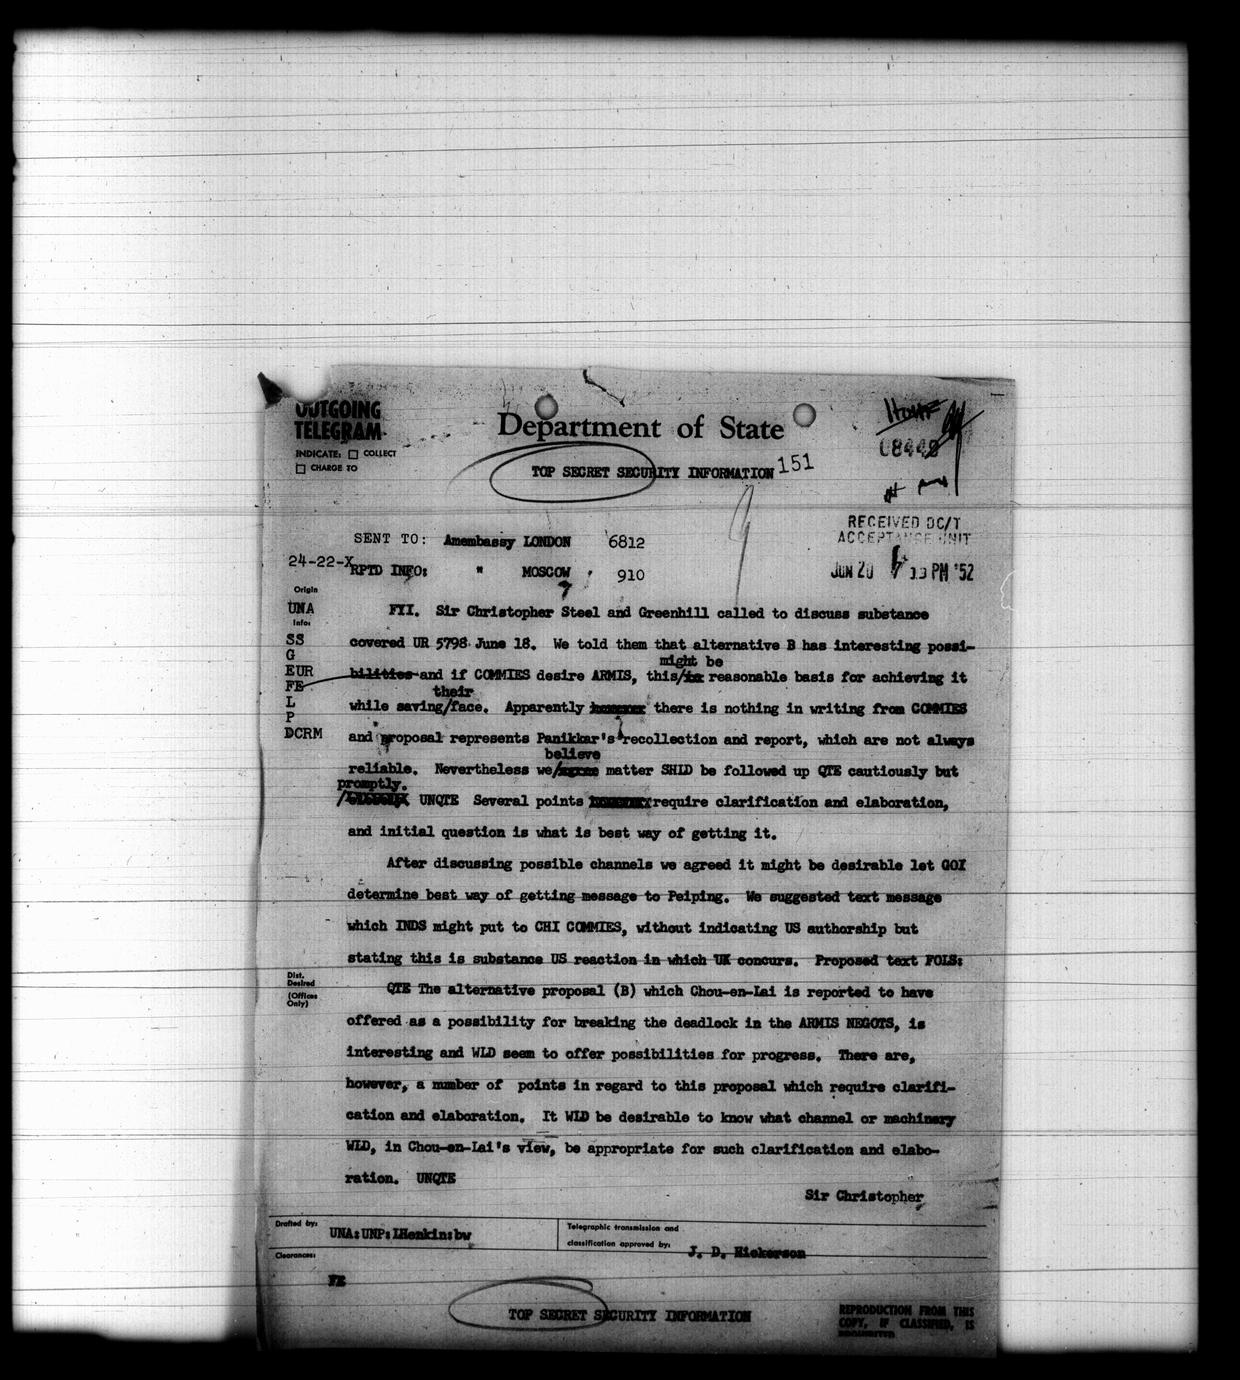 OUTGOING
TELEGRAM
INDICATE: ☐ COLLECT
☐ CHARGE TO
Department of State
TOP SECRET SECURITY INFORMATION 151
08448
RECEIVED DC/T
ACCEPTANCE UNIT
JUN 20 PM '52
SENT TO: Amembassy LONDON 6812
24-22-X
RPTD INFO: " MOSCOW 910
Origin
UNA
Info:
SS
G
EUR
FE
L
P
DCRM
FYI. Sir Christopher Steel and Greenhill called to discuss substance
covered UR 5798 June 18. We told them that alternative B has interesting possi-
might be
bilities and if COMMIES desire ARMIS, this/is reasonable basis for achieving it
their
while saving/face. Apparently there is nothing in writing from COMMIES
and proposal represents Panikkar's recollection and report, which are not always
believe
reliable. Nevertheless we/agree matter SHLD be followed up QTE cautiously but
promptly.
/ UNQTE Several points require clarification and elaboration,
and initial question is what is best way of getting it.
After discussing possible channels we agreed it might be desirable let GOI
determine best way of getting message to Peiping. We suggested text message
which INDS might put to CHI COMMIES, without indicating US authorship but
stating this is substance US reaction in which UK concurs. Proposed text FOLS:
Dist.
Desired
(Offices
Only)
QTE The alternative proposal (B) which Chou-en-Lai is reported to have
offered as a possibility for breaking the deadlock in the ARMIS NEGOTS, is
interesting and WLD seem to offer possibilities for progress. There are,
however, a number of points in regard to this proposal which require clarifi-
cation and elaboration. It WLD be desirable to know what channel or machinery
WLD, in Chou-en-Lai's view, be appropriate for such clarification and elabo-
ration. UNQTE
Sir Christopher
Drafted by:
UNA:UNP:LHenkin:bw
Telegraphic transmission and
classification approved by:
J. D. Hickerson
Clearances:
FE
TOP SECRET SECURITY INFORMATION
REPRODUCTION FROM THIS
COPY, IF CLASSIFIED, IS
PROHIBITED